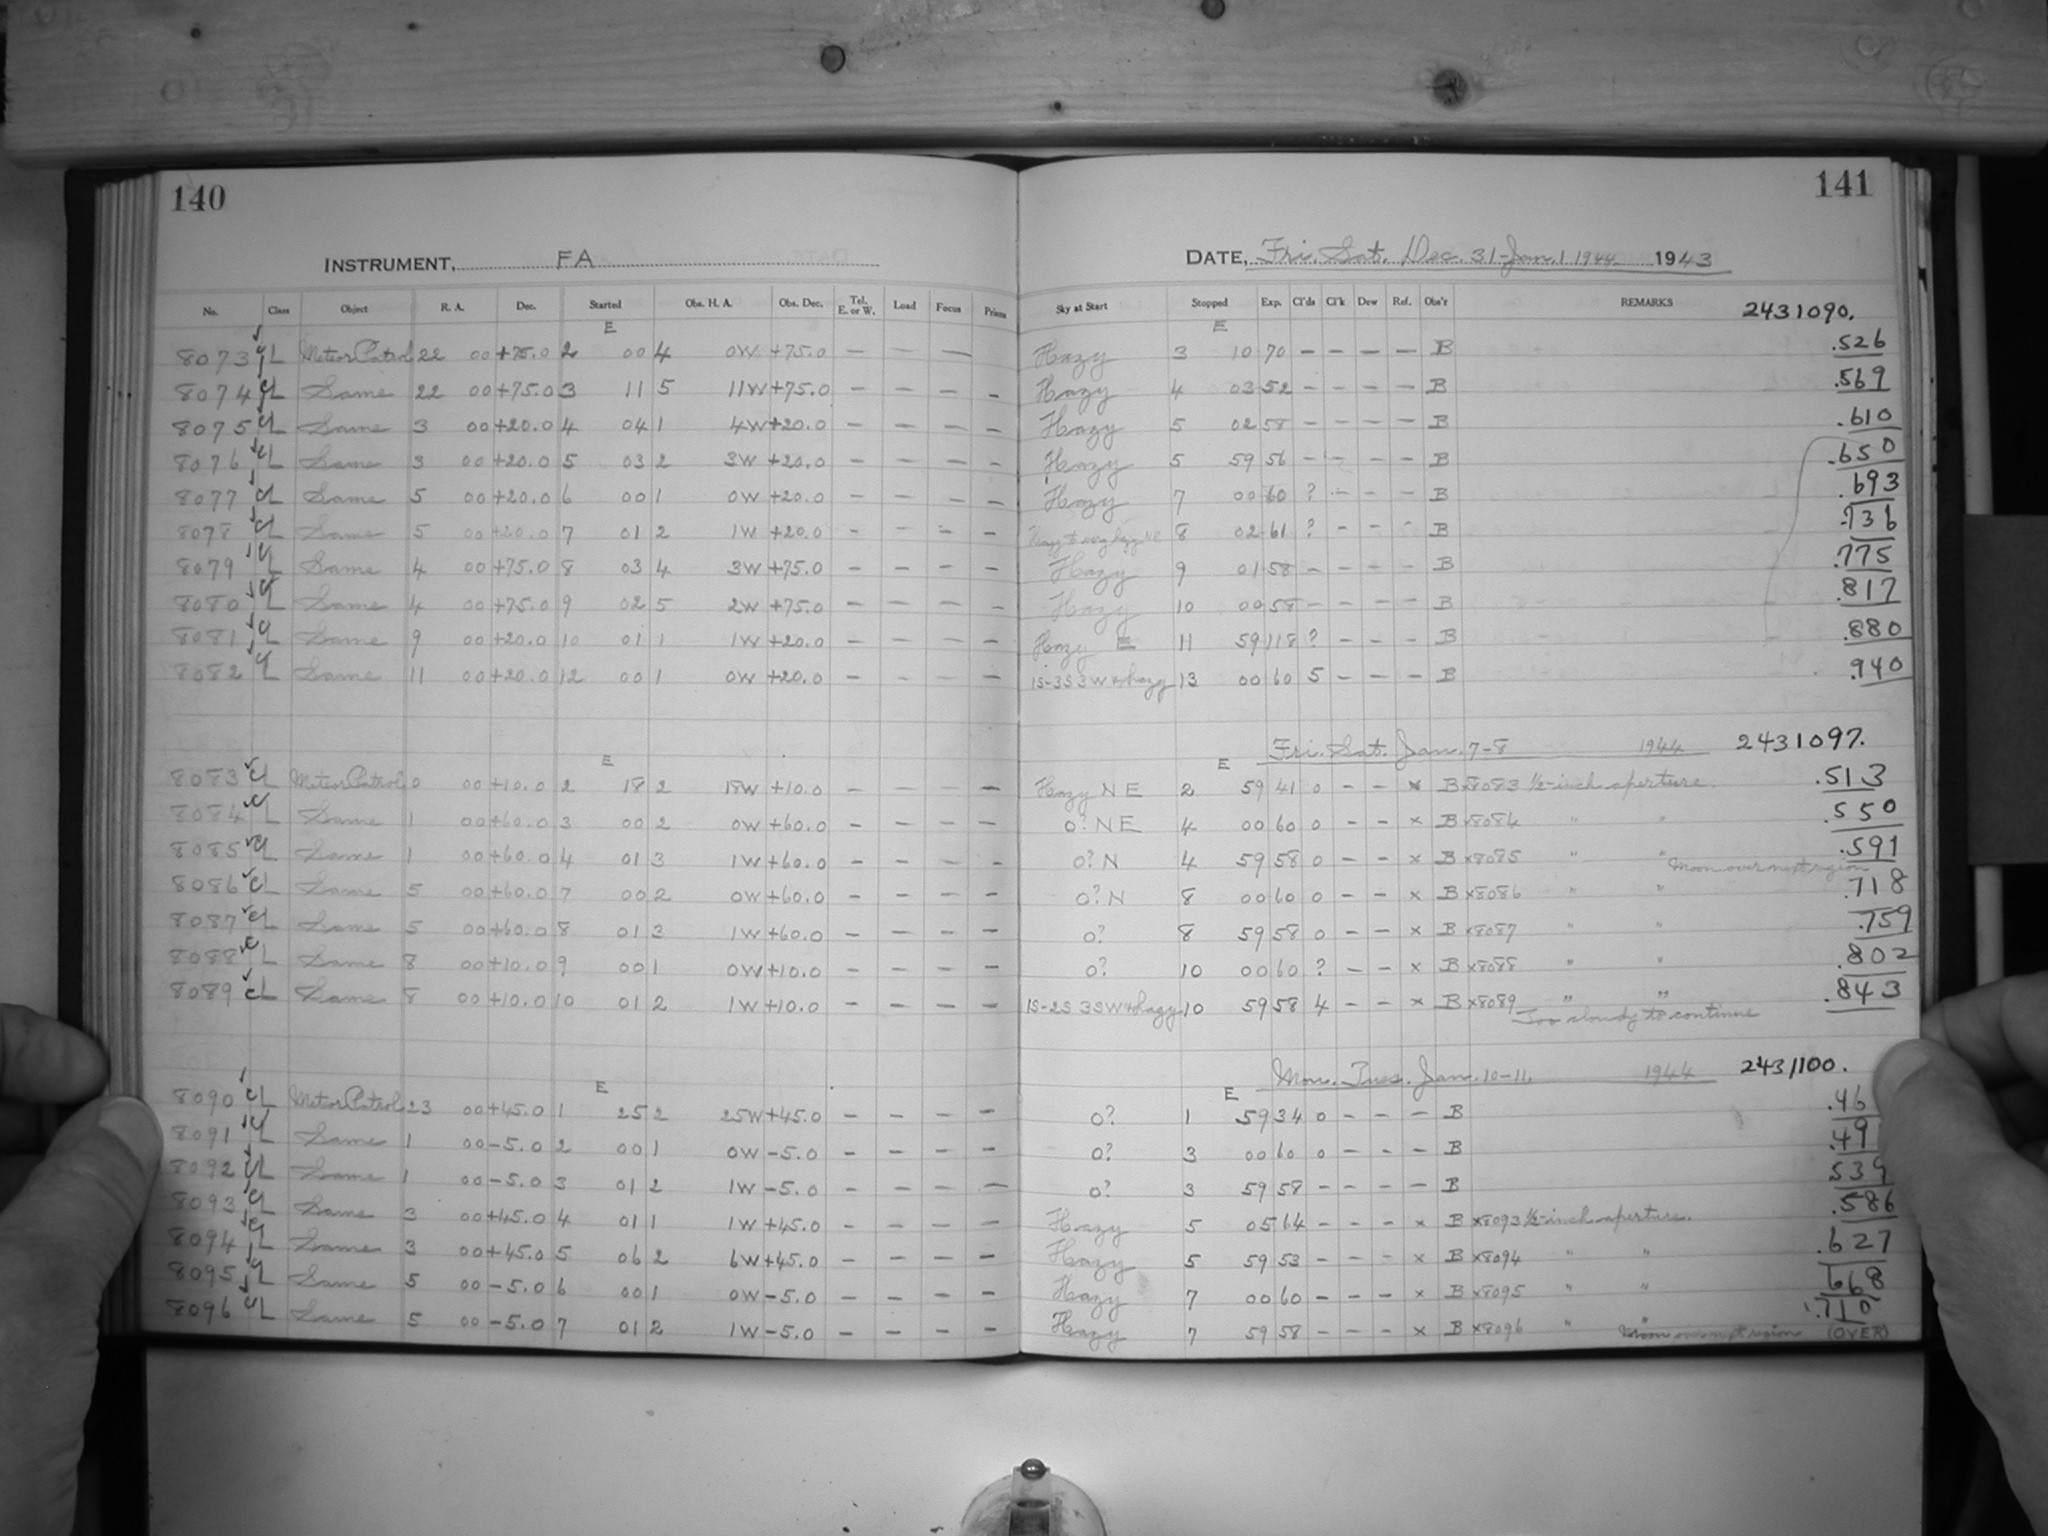 140
141
INSTRUMENT, FA
DATE, Fri. Sat. Dec. 31-Jan. 1 1944 1943
No. Class Object R. A. Dec. Started Obs. H. A. Obs. Dec. Tel. E. or W. Load Focus Prism Sky at Start Stopped Exp. Cl'ds Cl'k Dew Ref. Obs'r REMARKS 2431090.
E E
8073 CL Meteor Patrol 22 00 +75.0 2 00 4 0W +75.0 — — — Hazy 3 10 70 — — — — B .526
8074 CL Same 22 00 +75.0 3 11 5 11W +75.0 — — — — Hazy 4 03 52 — — — — B .569
8075 CL Same 3 00 +20.0 4 04 1 4W +20.0 — — — — Hazy 5 02 58 — — — — B .610
8076 CL Same 3 00 +20.0 5 03 2 3W +20.0 — — — — Hazy 5 59 56 — — — — B .650
8077 CL Same 5 00 +20.0 6 00 1 0W +20.0 — — — — Hazy 7 00 60 ? — — — B .693
8078 CL Same 5 00 +20.0 7 01 2 1W +20.0 — — — — Hazy to very hazy NE 8 02 61 ? — — — B .736
8079 CL Same 4 00 +75.0 8 03 4 3W +75.0 — — — — Hazy 9 01 58 — — — — B .775
8080 CL Same 4 00 +75.0 9 02 5 2W +75.0 — — — — Hazy 10 00 58 — — — — B .817
8081 CL Same 9 00 +20.0 10 01 1 1W +20.0 — — — — Hazy E 11 59 118 ? — — — B .880
8082 CL Same 11 00 +20.0 12 00 1 0W +20.0 — — — — 1S-3S 3W+hazy 13 00 60 5 — — — B .940
Fri. Sat. Jan. 7-8 1944 2431097.
E E
8083 CL Meteor Patrol 0 00 +10.0 2 18 2 18W +10.0 — — — — Hazy NE 2 59 41 0 — — × B ×8083 ½-inch aperture. .513
8084 CL Same 1 00 +60.0 3 00 2 0W +60.0 — — — — 0? NE 4 00 60 0 — — × B ×8084 " " .550
8085 CL Same 1 00 +60.0 4 01 3 1W +60.0 — — — — 0? N 4 59 58 0 — — × B ×8085 " " .591
Moon over next region
8086 CL Same 5 00 +60.0 7 00 2 0W +60.0 — — — — 0? N 8 00 60 0 — — × B ×8086 " " .718
8087 CL Same 5 00 +60.0 8 01 3 1W +60.0 — — — — 0? 8 59 58 0 — — × B ×8087 " " .759
8088 CL Same 8 00 +10.0 9 00 1 0W +10.0 — — — — 0? 10 00 60 ? — — × B ×8088 " " .802
8089 CL Same 8 00 +10.0 10 01 2 1W +10.0 — — — — 1S-2S 3SW+hazy 10 59 58 4 — — × B ×8089 " " .843
Too cloudy to continue
Mon. Tues. Jan. 10-11, 1944 2431100.
E E
8090 CL Meteor Patrol 23 00 +45.0 1 25 2 25W +45.0 — — — — 0? 1 59 34 0 — — — B .46
8091 CL Same 1 00 -5.0 2 00 1 0W -5.0 — — — — 0? 3 00 60 0 — — — B .49
8092 CL Same 1 00 -5.0 3 01 2 1W -5.0 — — — — 0? 3 59 58 — — — — B 539
8093 CL Same 3 00 +45.0 4 01 1 1W +45.0 — — — — Hazy 5 05 64 — — — × B ×8093 ½-inch aperture. .586
8094 CL Same 3 00 +45.0 5 06 2 6W +45.0 — — — — Hazy 5 59 53 — — — × B ×8094 " " .627
8095 CL Same 5 00 -5.0 6 00 1 0W -5.0 — — — — Hazy 7 00 60 — — — × B ×8095 " " .668
8096 CL Same 5 00 -5.0 7 01 2 1W -5.0 — — — — Hazy 7 59 58 — — — × B ×8096 " " .710
Moon over next region (OVER)